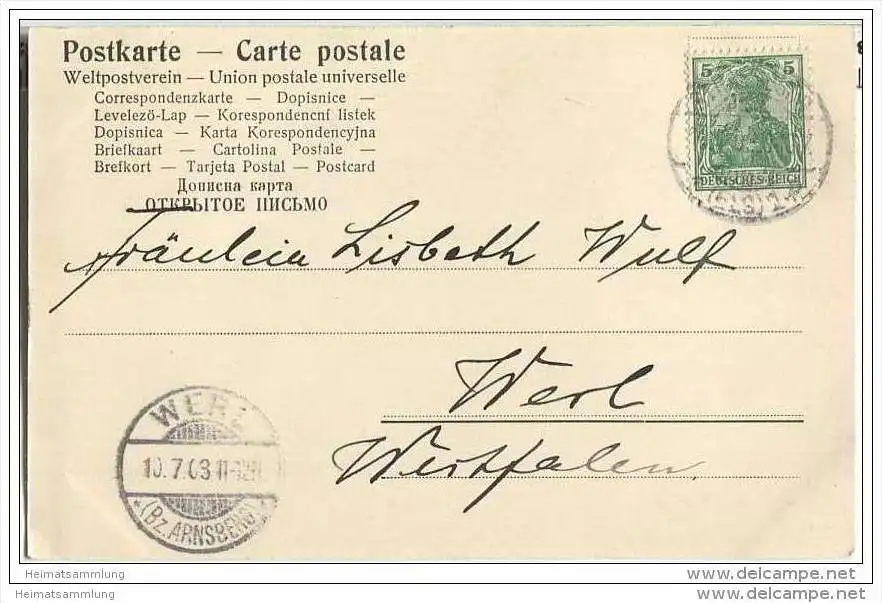 Postkarte — Carte postale
Weltpostverein — Union postale universelle
Correspondenzkarte — Dopisnice —
Levelező-Lap — Korespondencní listek
Dopisnica — Karta Korespondencyjna
Briefkaart — Cartolina Postale —
Brefkort — Tarjeta Postal — Postcard
Дописна карта
ОТКРЫТОЕ ПИСЬМО
5 5
DEUTSCHES REICH
Fräulein Lisbeth Wulf
Werl
Westfalen
WERL
10.7.03 11-12N
*(BZ. ARNSBERG)*
Heimatsammlung
Heimatsammlung
www.delcampe.net
www.delcampe.net